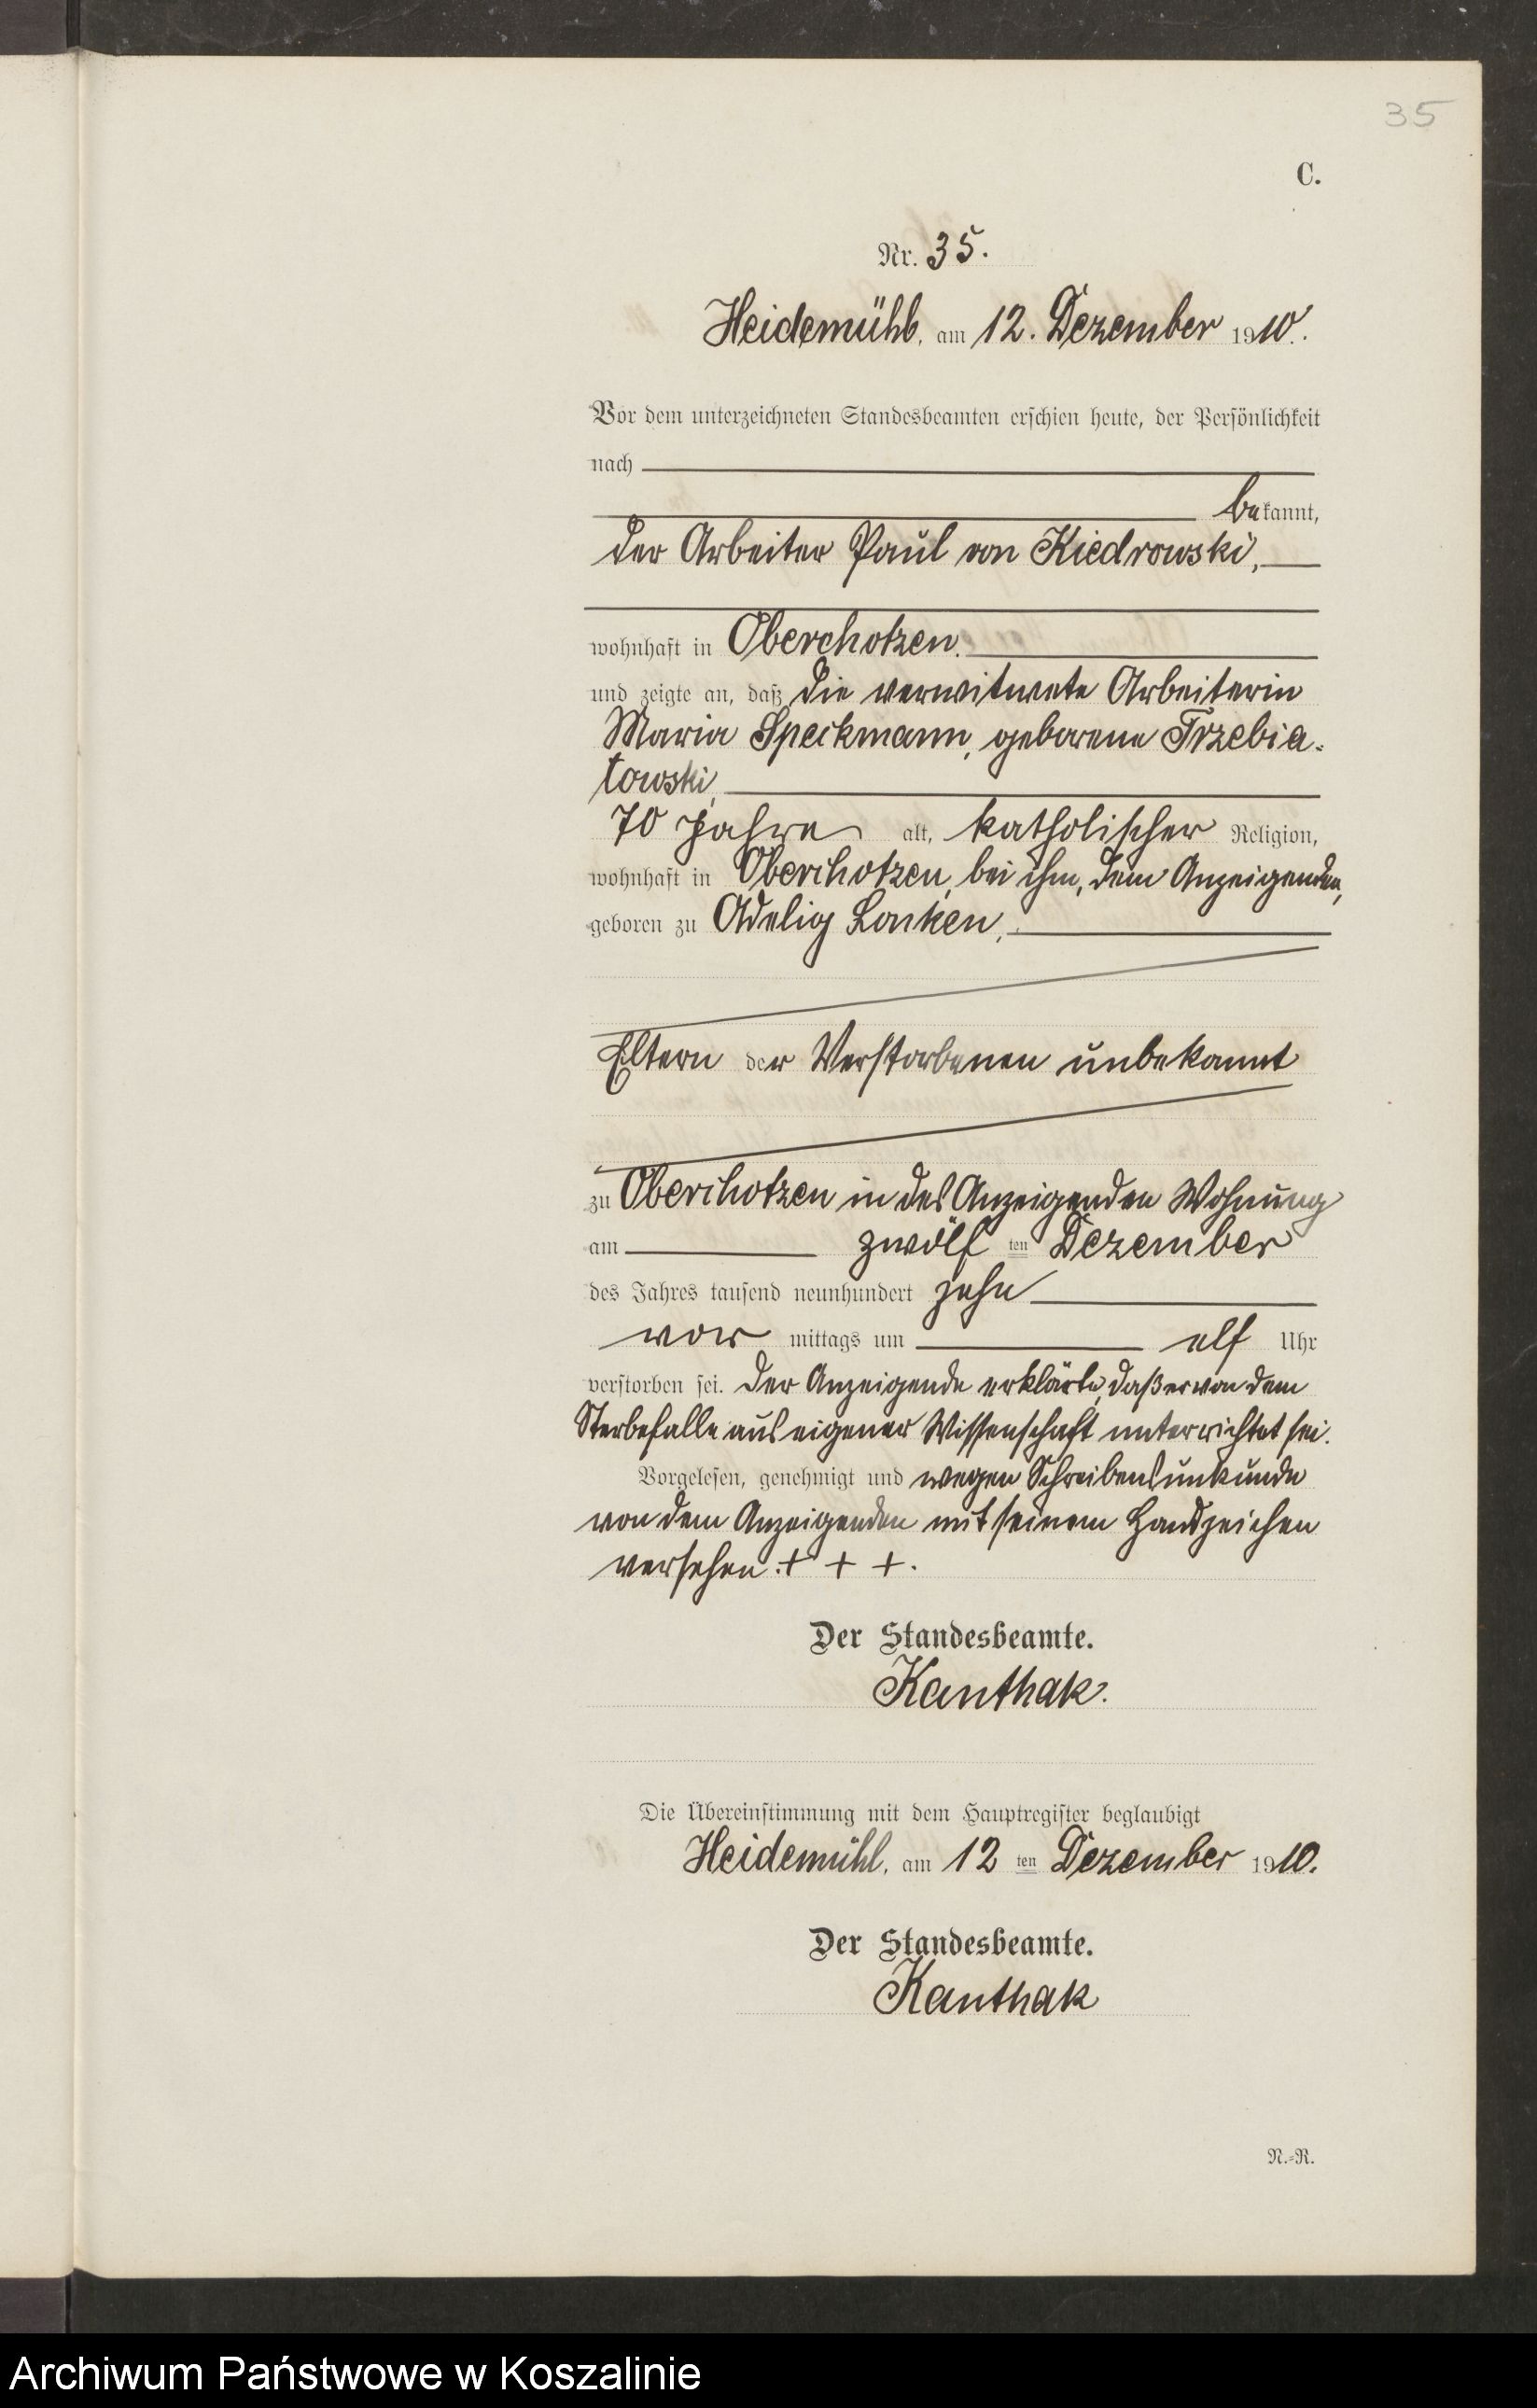 35
C.
Nr. 35.
Heidemühl, am 12. Dezember 1910.
Vor dem unterzeichneten Standesbeamten erschien heute, der Persönlichkeit
nach
bekannt,
der Arbeiter Paul von Kiedrowski,
wohnhaft in Oberchotzen.
und zeigte an, daß die verwitwete Arbeiterin
Maria Speckmann, geborene Trzebia-
towski,
70 Jahre alt, katholischer Religion,
wohnhaft in Oberchotzen, bei ihm, dem Anzeigenden,
geboren zu Adelig Lonken,
Eltern der Verstorbenen unbekannt
zu Oberchotzen in des Anzeigenden Wohnung
am zwölf ten Dezember
des Jahres tausend neunhundert zehn
vor mittags um elf Uhr
verstorben sei. Der Anzeigende erklärte, daß er von dem
Sterbefalle aus eigener Wissenschaft unterrichtet sei.
Vorgelesen, genehmigt und wegen Schreibensunkunde
von dem Anzeigenden mit seinem Handzeichen
versehen. + + +.
Der Standesbeamte.
Kanthak.
Die Übereinstimmung mit dem Hauptregister beglaubigt
Heidemühl, am 12 ten Dezember 1910.
Der Standesbeamte.
Kanthak
N.-R.
Archiwum Państwowe w Koszalinie